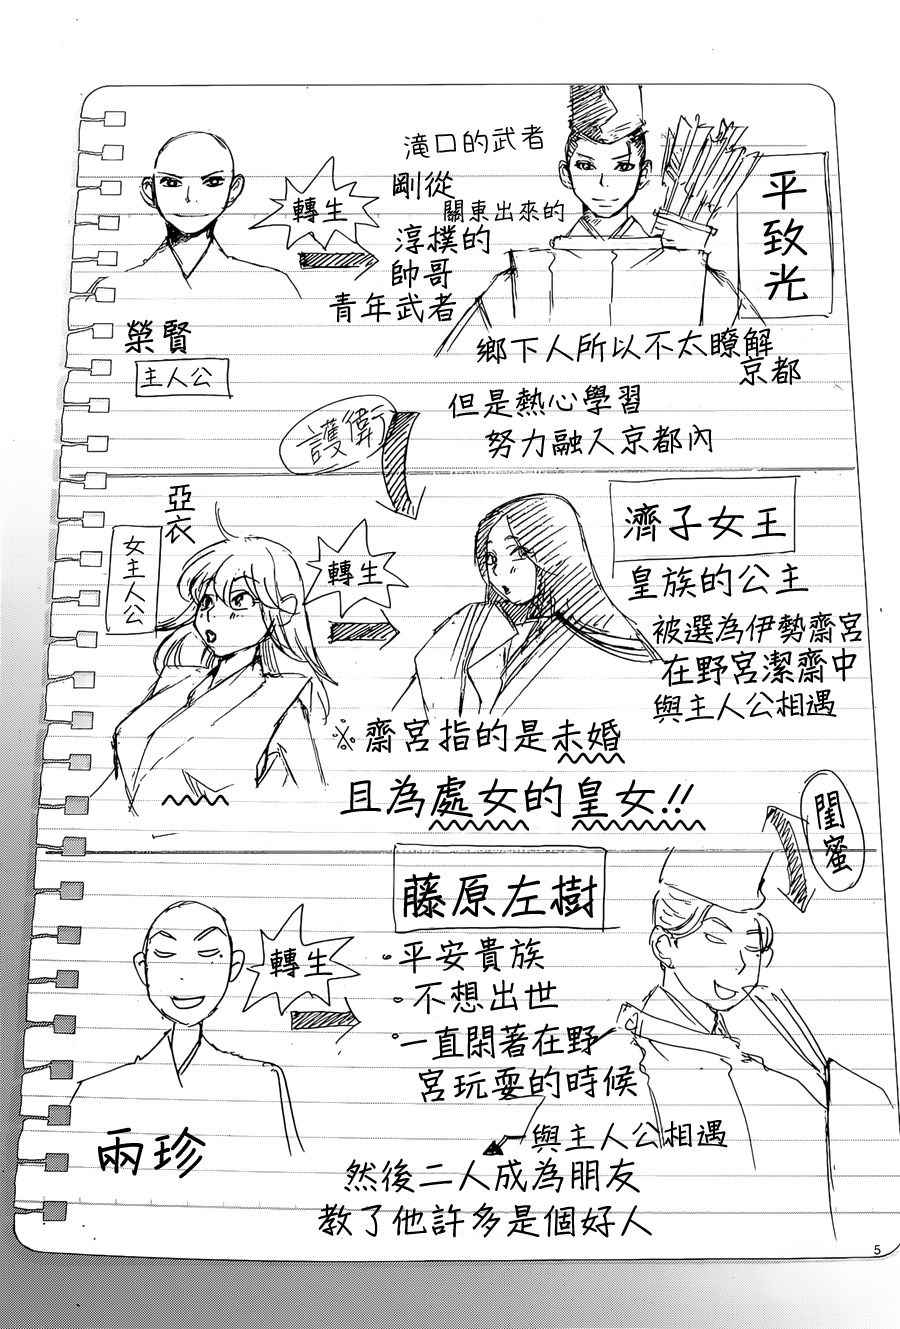 平致光
滝口的武者
剛從
關東出來的
淳樸的
帥哥
青年武者
轉生
榮賢
主人公
鄉下人所以不太瞭解
京都
但是熱心學習
努力融入京都內
護衛
亞衣
女主人公
轉生
濟子女王
皇族的公主
被選為伊勢齋宮
在野宮潔齋中
與主人公相遇
※齋宮指的是未婚
且為處女的皇女!!
閨蜜
藤原左樹
轉生
・平安貴族
・不想出世
・一直閑著在野
宮玩耍的時候
與主人公相遇
然後二人成為朋友
教了他許多是個好人
兩珍
5